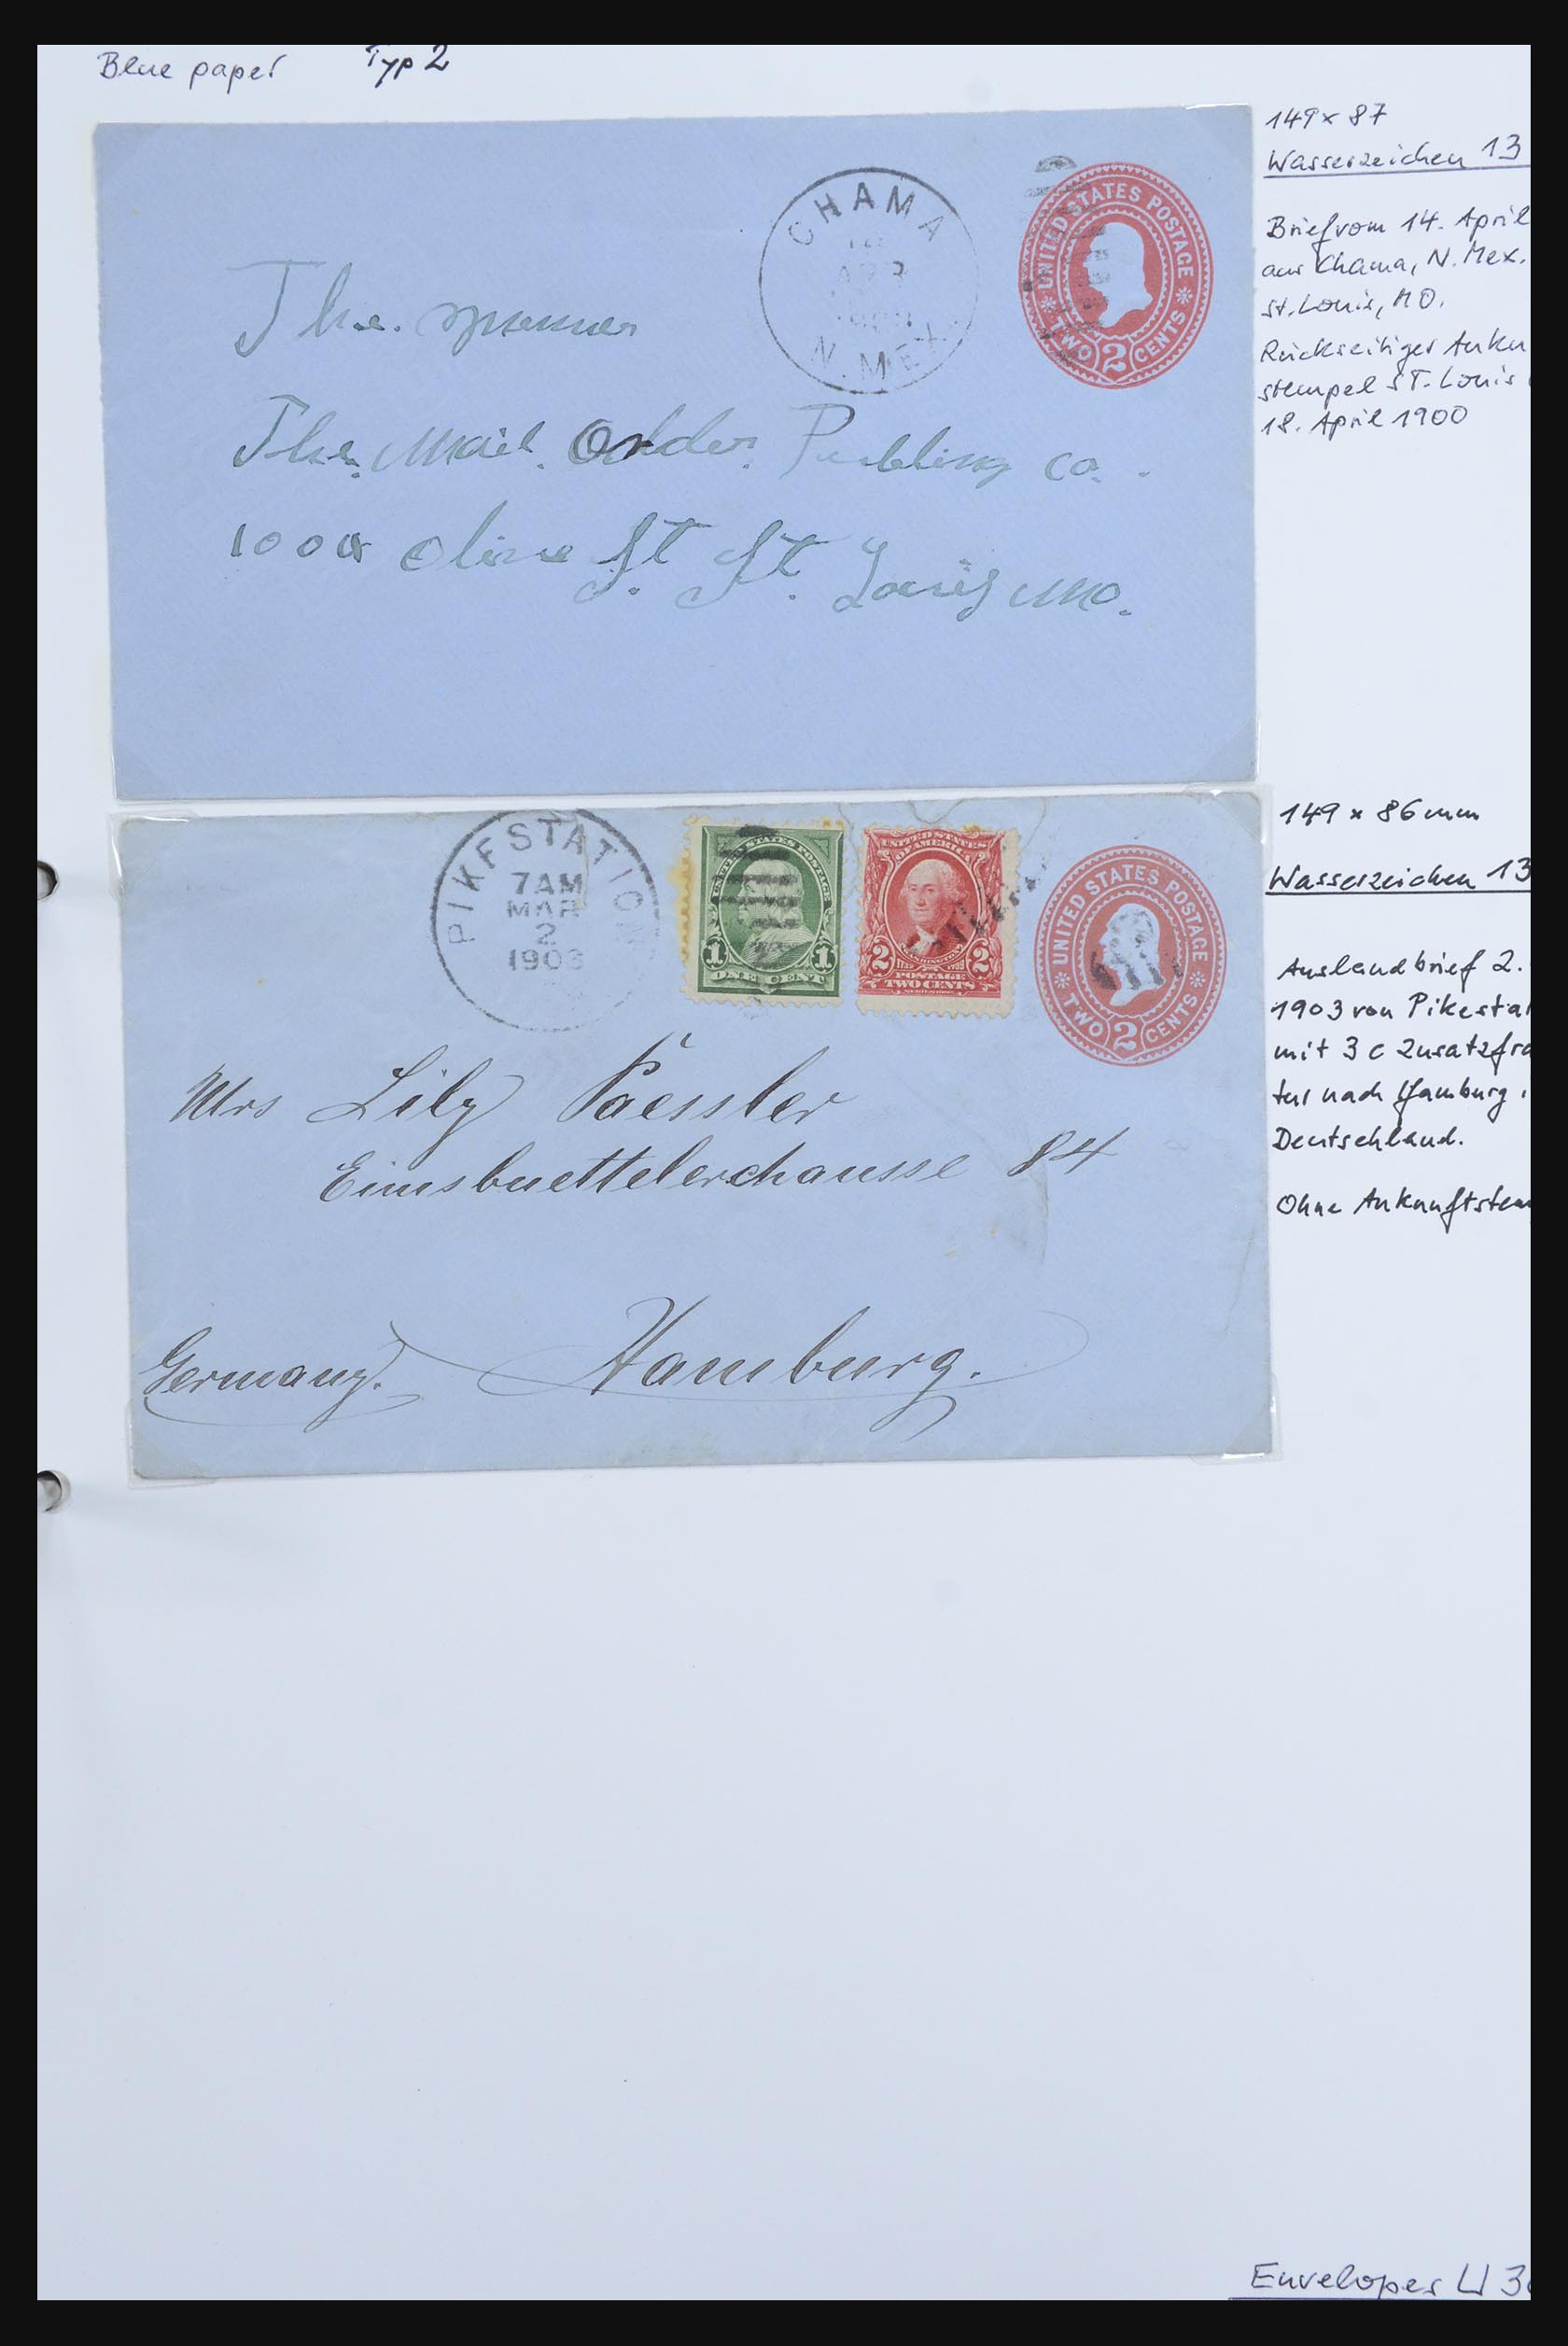 Blue paper Typ 2
149 x 87
Wasserzeichen 13
Brief vom 14. April
aus Chama, N. Mex.
St. Louis, MO.
Rückseitiger Anku
stempel ST. Louis
18. April 1900
CHAMA
APR
N. MEX.
UNITED STATES POSTAGE
TWO 2 CENTS
The
The Mail Order Publing Co.
Olive St. St. Louis Mo.
149 x 86 mm
Wasserzeichen 13
Auslandbrief 2.
1903 von Pikestat
mit 3 c Zusatzfra
tur nach Hamburg,
Deutschland.
Ohne Ankunftstem
PIKESTATION
7AM
MAR
2
1903
UNITED STATES POSTAGE
1 1
ONE CENT
UNITED STATES
OF AMERICA
2 2
WASHINGTON
POSTAGE
TWO CENTS
UNITED STATES POSTAGE
TWO 2 CENTS
Mrs Lily Paessler
Eimsbuettelerchausse 84
Hamburg.
Germany.
Envelopes U 3